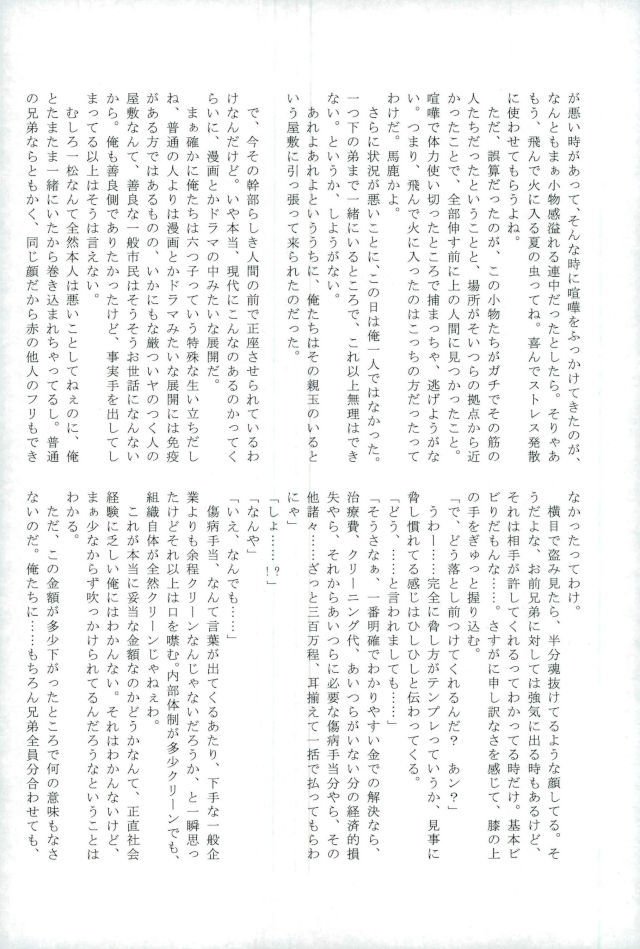 が悪い時があって、そんな時に喧嘩をふっかけてきたのが、
なんともまぁ小物感溢れる連中だったとしたら。そりゃあ
もう、飛んで火に入る夏の虫ってね。喜んでストレス発散
に使わせてもらうよね。
ただ、誤算だったのが、この小物たちがガチでその筋の
人たちだったということと、場所がそいつらの拠点から近
かったことで、全部伸す前に上の人間に見つかったこと。
喧嘩で体力使い切ったところで捕まっちゃ、逃げようがな
い。つまり、飛んで火に入ったのはこっちの方だったって
わけだ。馬鹿かよ。
さらに状況が悪いことに、この日は俺一人ではなかった。
一つ下の弟まで一緒にいるところで、これ以上無理はでき
ない。というか、しようがない。
あれよあれよというちに、俺たちはその親玉のいると
いう屋敷に引っ張って来られたのだった。
で、今その幹部らしき人間の前で正座させられているわ
けなんだけど。いや本当、現代にこんなのあるのかってく
らいに、漫画とかドラマの中みたいな展開だ。
まぁ確かに俺たちは六つ子っていう特殊な生い立ちだし
ね、普通の人よりは漫画とかドラマみたいな展開には免疫
がある方ではあるものの、いかにもな厳ついヤのつく人の
屋敷なんて、善良な一般市民はそうそうお世話になんない
から。俺も善良側でありたかったけど、事実手を出してし
まってる以上はそうは言えない。
むしろ一松なんて全然本人は悪いことしてねぇのに、俺
とたまたま一緒にいたから巻き込まれちゃってるし。普通
の兄弟ならともかく、同じ顔だから赤の他人のフリもでき
なかったってわけ。
横目で盗み見たら、半分魂抜けてるような顔してる。そ
うだよな、お前兄弟に対しては強気に出る時もあるけど、
それは相手が許してくれるってわかってる時だけ。基本ビ
ビりだもんな……。さすがに申し訳なさを感じて、膝の上
の手をぎゅっと握り込む。
「で、どう落とし前つけてくれるんだ？　あン？」
うわー……完全に脅し方がテンプレっていうか、見事に
脅し慣れてる感じはひしひしと伝わってくる。
「どう、……と言われましても……」
「そうさなぁ、一番明確でわかりやすい金での解決なら、
治療費、クリーニング代、あいつらがいない分の経済的損
失やら、それからあいつらに必要な傷病手当分やら、その
他諸々……ざっと三百万程、耳揃えて一括で払ってもらわ
にゃ」
「しょ……！？」
「なんや」
「いえ、なんでも……」
傷病手当、なんて言葉が出てくるあたり、下手な一般企
業よりも余程クリーンなんじゃないだろうか、と一瞬思っ
たけどそれ以上は口を噤む。内部体制が多少クリーンでも、
組織自体が全然クリーンじゃねぇわ。
これが本当に妥当な金額なのかどうかなんて、正直社会
経験に乏しい俺にはわかんない。それはわかんないけど、
まぁ少なからず吹っかけられてるんだろうなということは
わかる。
ただ、この金額が多少下がったところで何の意味もなさ
ないのだ。俺たちに……もちろん兄弟全員分合わせても、